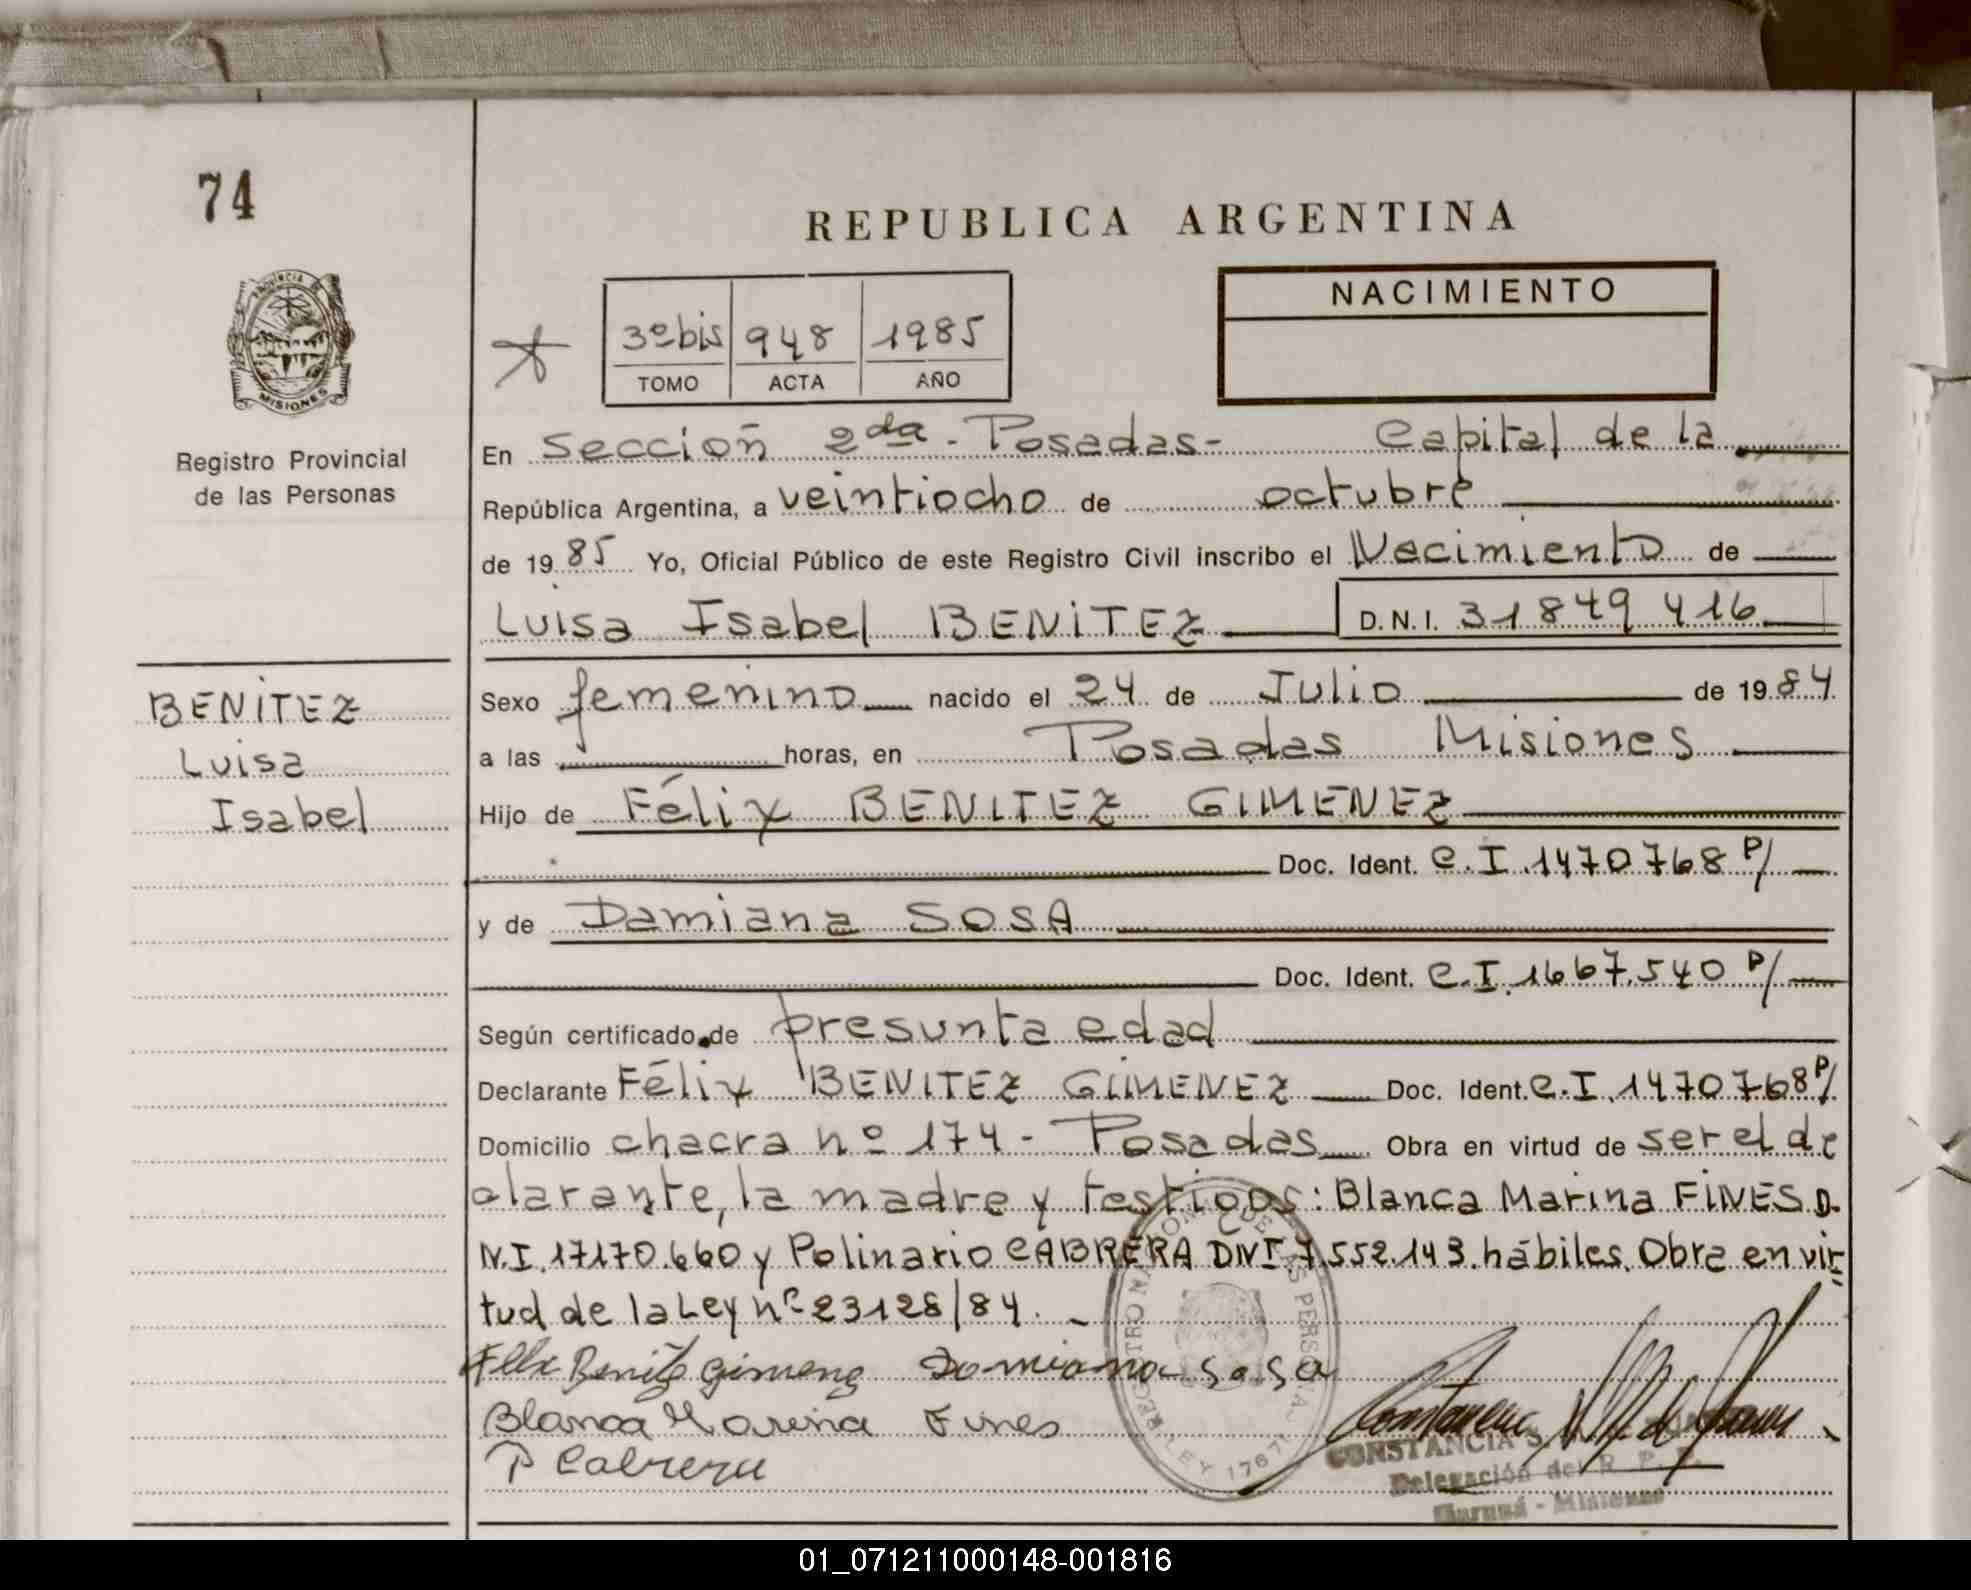 74
REPUBLICA ARGENTINA
PROVINCIA DE
MISIONES
Registro Provincial
de las Personas
3º bis 948 1985
TOMO ACTA AÑO
NACIMIENTO
En Sección 2da - Posadas - Capital de la
República Argentina, a veintiocho de octubre
de 1985 Yo, Oficial Público de este Registro Civil inscribo el Nacimiento de
Luisa Isabel BENITEZ D.N.I. 31849416
BENITEZ
Luisa
Isabel
Sexo femenino nacido el 24 de Julio de 1984
a las horas, en Posadas Misiones
Hijo de Félix BENITEZ GIMENEZ
Doc. Ident. C.I. 1470768 P/
y de Damiana SOSA
Doc. Ident. C.I. 1667.540 P/
Según certificado de presunta edad
Declarante Félix BENITEZ GIMENEZ Doc. Ident. C.I. 1470768 P/
Domicilio chacra nº 174 - Posadas Obra en virtud de ser el de
clarante, la madre y testigos: Blanca Marina FINES D.
N.I. 17170.660 y Polinario CABRERA DNI. 7.552.143. hábiles. Obra en vir
tud de la Ley nº 23128/84. -
Félix Benitez Gimenez Damiana Sosa
Blanca Marina Fines
P Cabrera
REGISTRO NACIONAL DE LAS PERSONAS
LEY 17671
CONSTANCIA S.
Delegación del R. P.
- Misiones
01_071211000148-001816